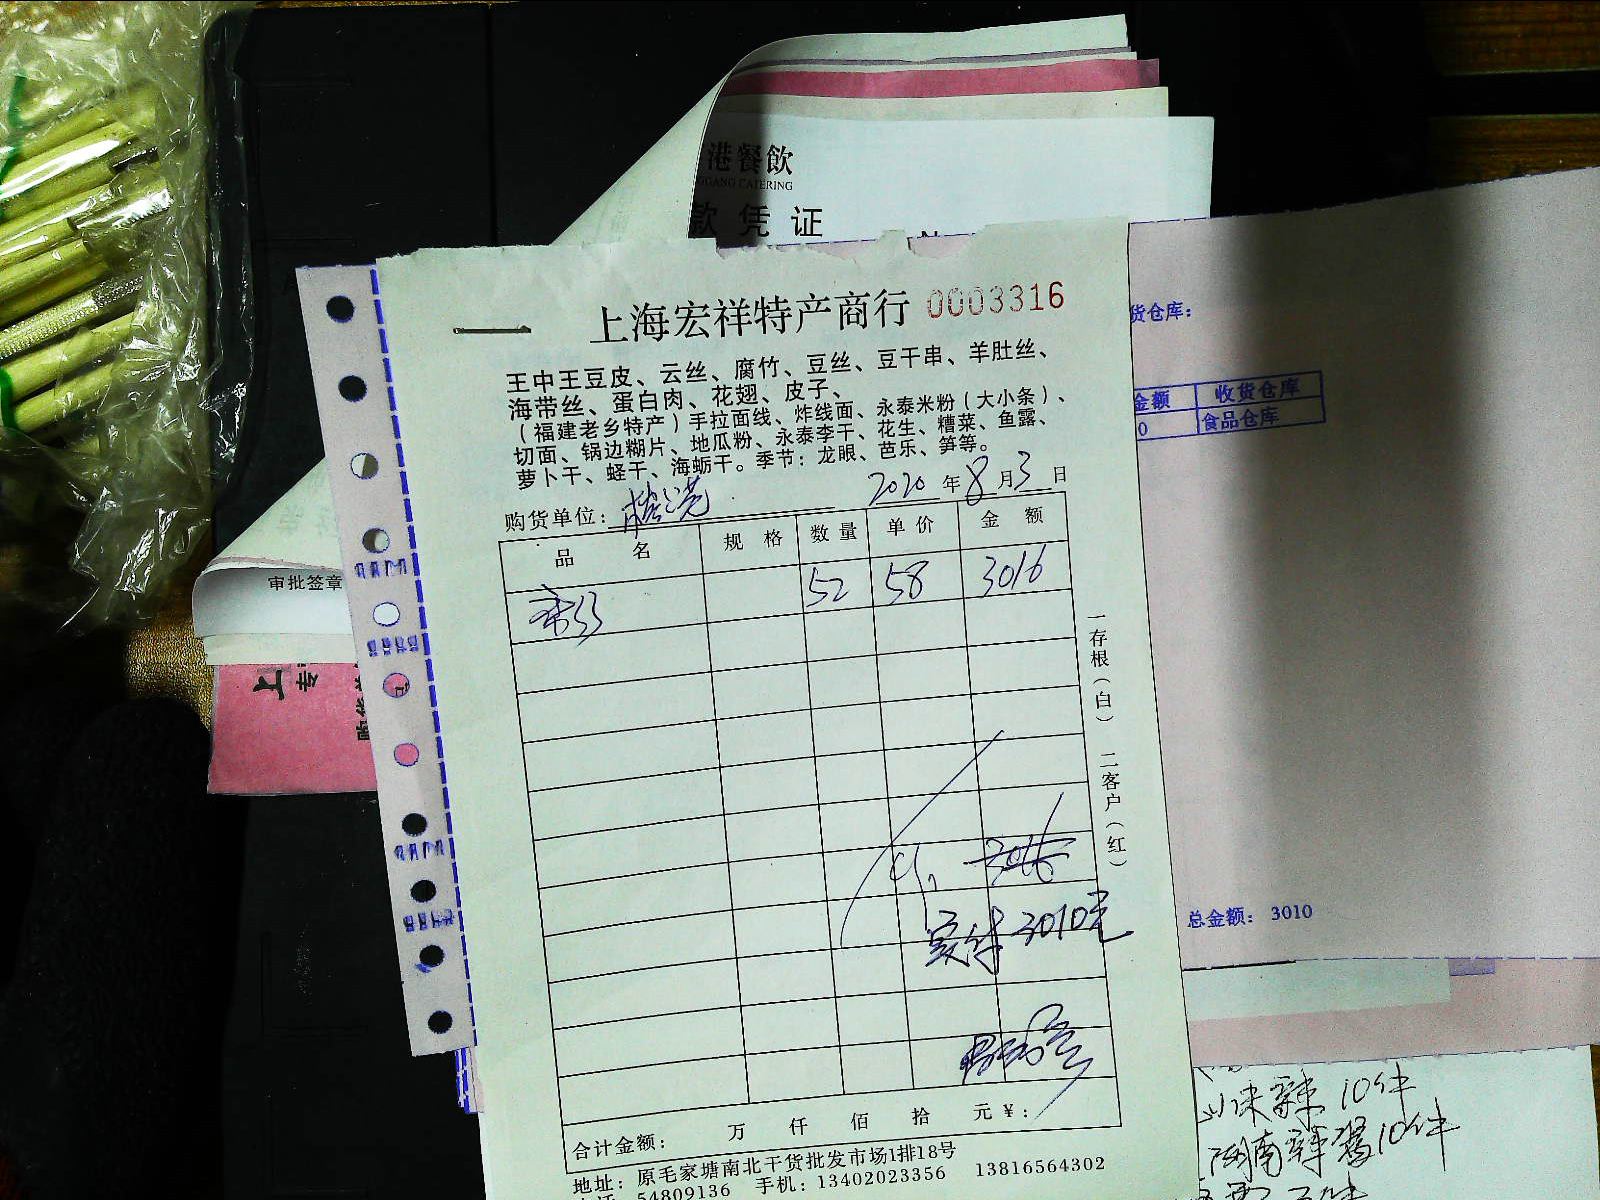 港餐飲
GANG CATERING
款凭证
上海宏祥特产商行 0003316
王中王豆皮、云丝、腐竹、豆丝、豆干串、羊肚丝、
海带丝、蛋白肉、花翅、皮子、
（福建老乡特产）手拉面线、炸线面、永泰米粉（大小条）、
切面、锅边糊片、地瓜粉、永泰李干、花生、糟菜、鱼露、
萝卜干、蛏干、海蛎干。季节：龙眼、芭乐、笋等。
购货单位： 2020年8月3日
品名 规格 数量 单价 金额
52 58 3016
3016
实付3010元
合计金额： 万 仟 佰 拾 元¥：
地址：原毛家塘南北干货批发市场1排18号
54809136 手机：13402023356 13816564302
一存根（白） 二客户（红）
货仓库：
金额 收货仓库
0 食品仓库
总金额： 3010
审批签章
上
专
10件
10件